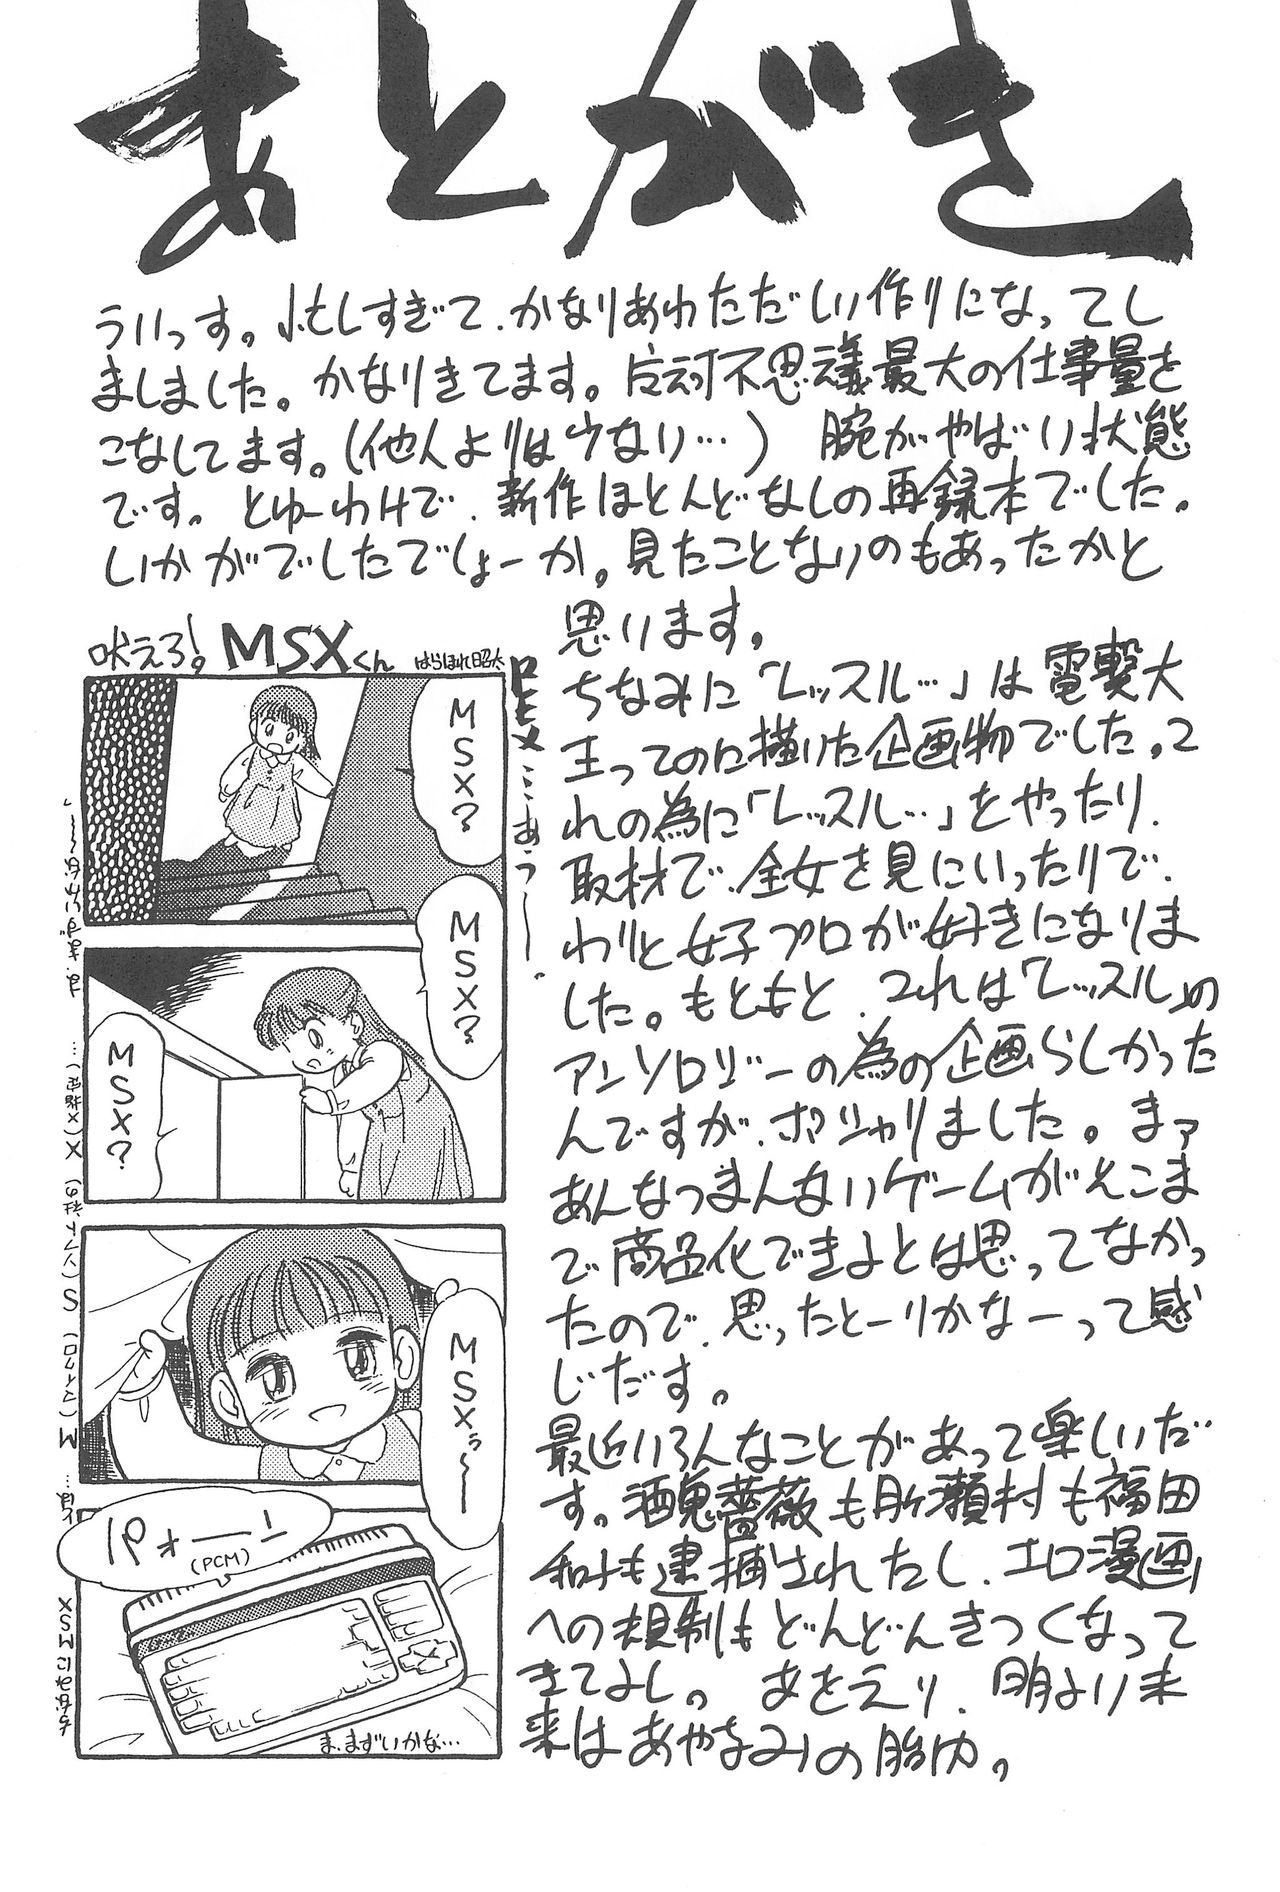 あとがき
ういっす。忙しすぎて、かなりあわただしい作りになってし
ましました。かなりきてます。反対不思議最大の仕事量を
こなしてます。(他人よりは少ない…) 腕がやばい状態
です。とゆーわけで、新作ほとんどなしの再録本でした。
いかがでしたでしょーか。見たことないのもあったかと
思います。
ちなみに「レッスル…」は電撃大
王ってのに描いた企画物でした。こ
れの為に「レッスル…」をやったり、
取材で、全女を見にいったりで、
わりと女子プロが好きになりま
した。もともと、これは「レッスル」の
アンソロジーの為の企画らしかった
んですが、ポシャりました。まァ
あんなつまんないゲームがそこま
で商品化できるとは思ってなかっ
たので、思ったとーりかなーって感
じだす。
最近いろんなことがあって楽しいだ
す。酒鬼薔薇も月ヶ瀬村も福田
和子も逮捕されたし、エロ漫画
への規制もどんどんきつくなって
きてよし。あをえり、明るい未
来はあやなみの胎内。
吠えろ!MSXくん
はらほれ昭太
MSX?
MSX?
MSX?
MSXぅ〜
パォーーー
(PCM)
ま、まずいかな…